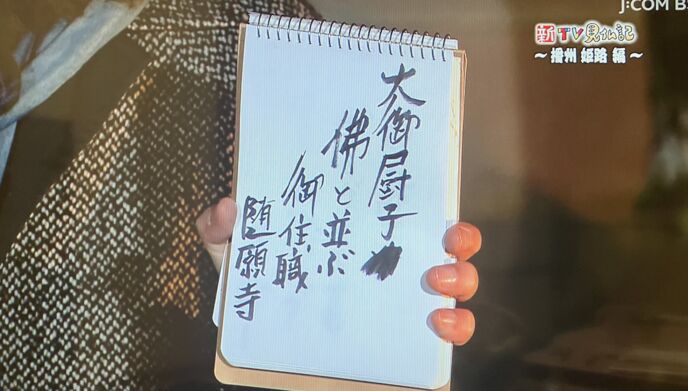 J:COM B
新TV見仏記
～播州 姫路 編～
大御厨子
佛と並ぶ
御住職
随願寺